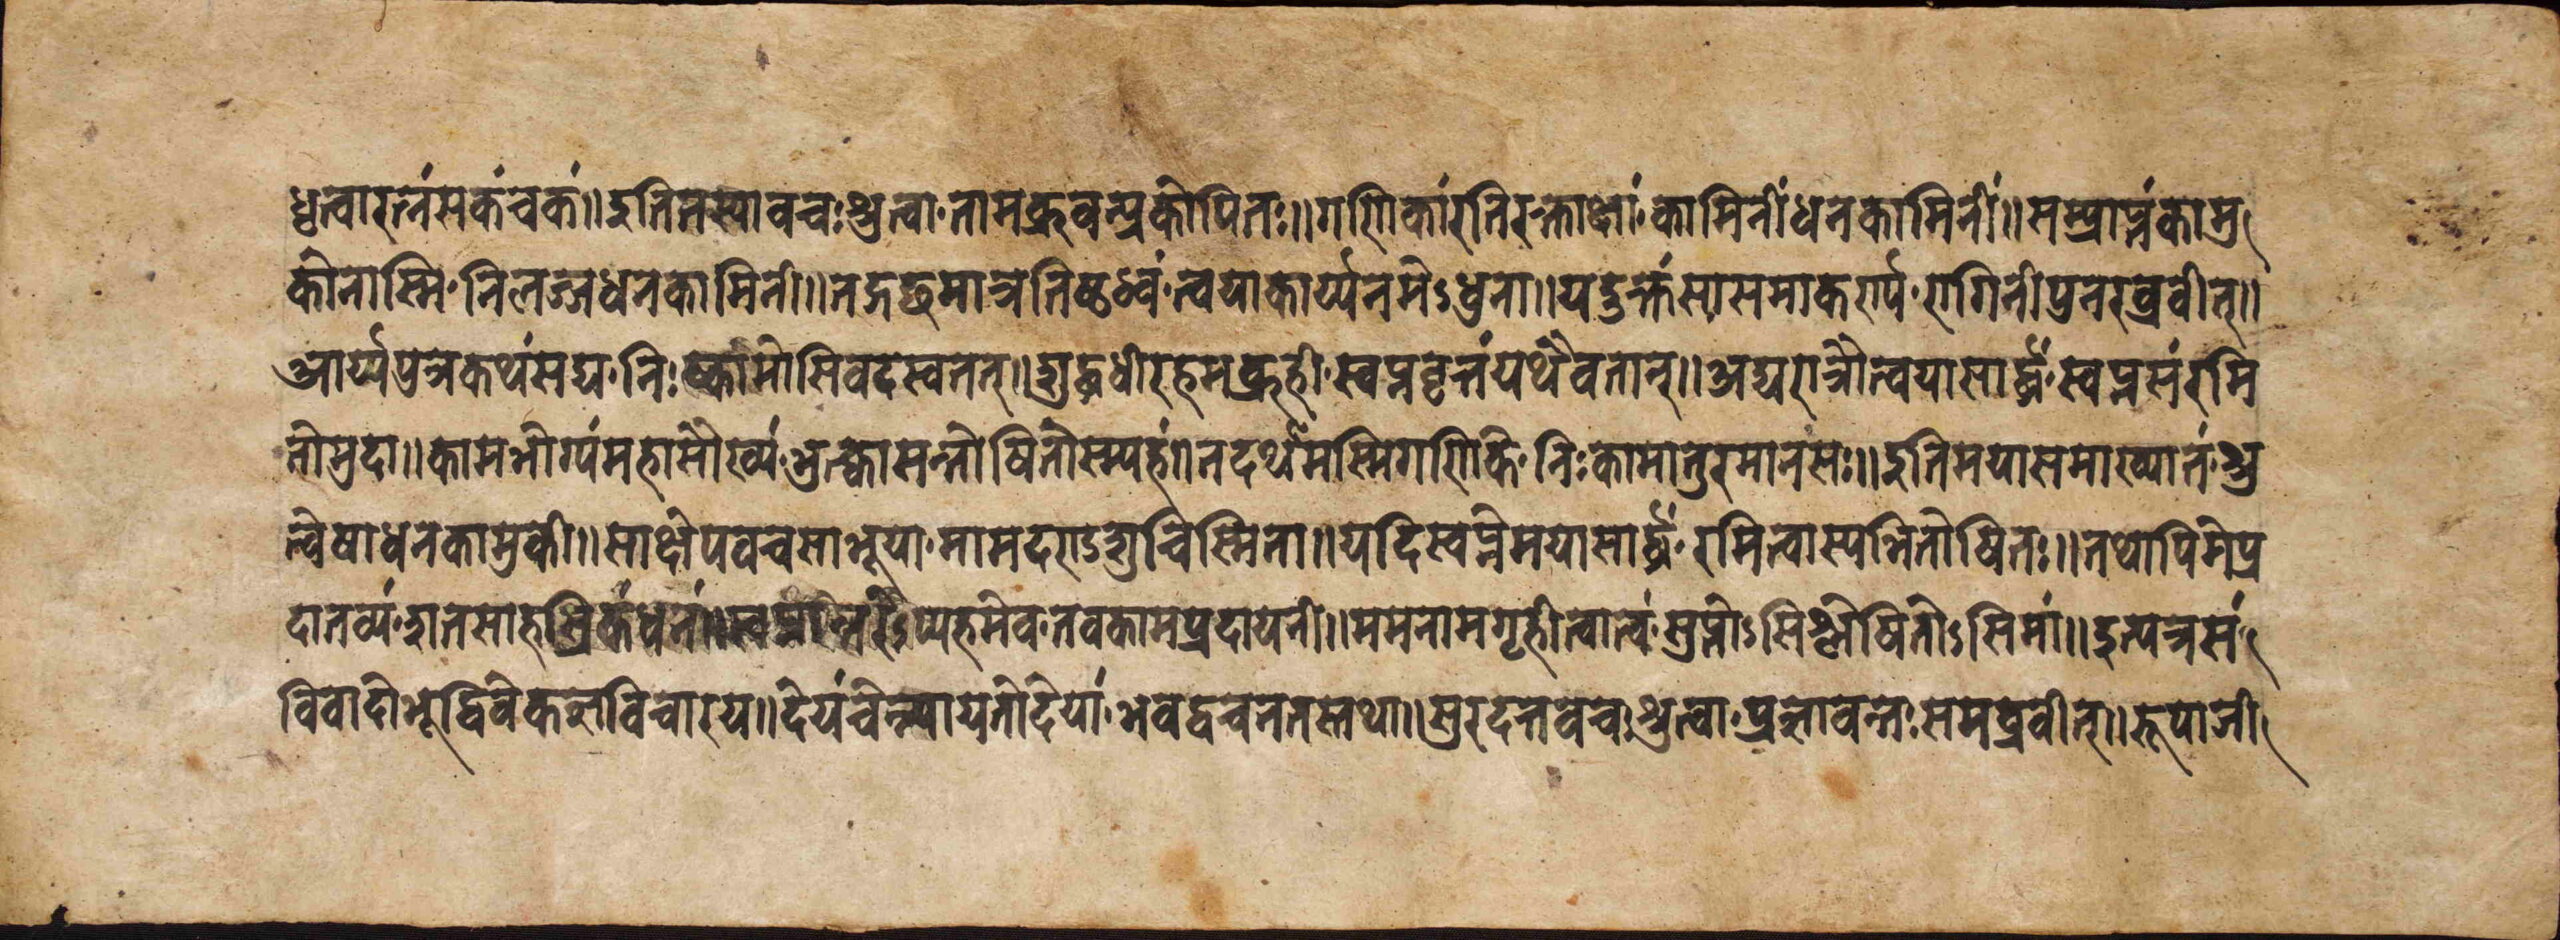 धृत्वारत्नंसकंचकं॥इतितस्यावचःश्रुत्वा॰तामब्रुवत्प्रकोपितः॥गणिकांरतिरक्ताक्षां॰कामिनींधनकामिनीं॥सम्प्राप्तंकामु
कोनास्मि॰निलज्जधनकामिनी॥तद्गच्छमात्रतिष्ठध्वं॰त्वयाकार्य्यनमेऽधुना॥यदुक्तंसासमाकर्ण्य॰रागिनीपुनरब्रवीत्॥
आर्य्यपुत्रकथंसद्य॰निःष्कामोसिवदस्वतत्॥शुद्धधीरहमब्रूही॰स्वप्नवृत्तंयथैवतान्॥अद्यरात्रौत्वयासार्द्धं॰स्वप्नसंरमि
तोमुदा॥कामभोग्यंमहासौख्यं॰भुत्क्वासन्तोषितोस्म्यहं॥तदर्थमस्मिगणिके॰निःकामातुरमानसः॥इतिमयासमाख्यातं॰श्रु
त्वेषाधनकामुकी॥साक्षेपवचसाभूया॰मामदराऽशुचिस्मिता॥यदिस्वप्नेमयासार्द्धं॰रमित्वास्यभितोषितः॥तथापिमेप्र
दातव्यं॰शतसाहस्रिकंधनं॥स्वप्नान्तरेऽप्यहमेव॰तवकामप्रदायनी॥ममनामगृहीत्वात्वं॰सुप्तोऽसिश्लेषितोऽसिमां॥इत्यत्रसं
विवादोभूद्विवेकत्वविचारय॥देयंचेन्न्यायतोदेयां॰भवद्वचनतस्तथा॥सुरदत्तवचःश्रुत्वा॰प्रज्ञावन्तःसमब्रवीत्॥रूपाजी